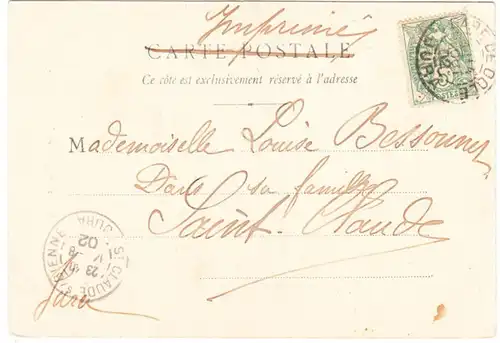 Imprimés
CARTE POSTALE
Ce côté est exclusivement réservé à l'adresse
Mademoiselle Louise Bessonnet
Dans sa famille
Saint-Claude
Jura
ST CLAUDE S/BIENNE
JURA
23
02
GARE DE DOLE
JURA